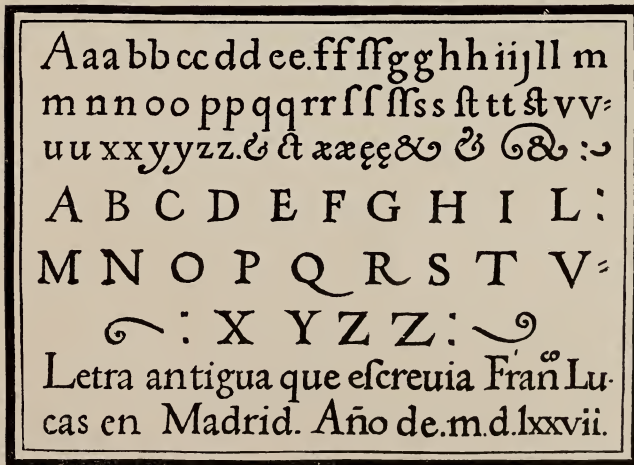 Aaabbccddee.ffſſgghhiijllm
mnnooppqqrrſſſſssſtttſtvv⸗
uuxxyyzz.& ct ææęę& & & :~
A B C D E F G H I L :
M N O P Q R S T V⸗
~ : X Y Z Z : ~
Letra antigua que eſcreuia Franͨͦ Lu-
cas en Madrid. Año de.m.d.lxxvii.